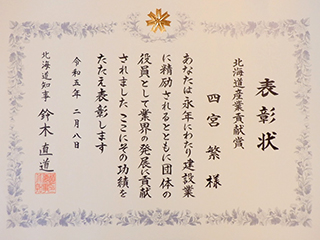 表彰状
北海道産業貢献賞
四宮 繁 様
あなたは永年にわたり建設業
に精励されるとともに団体の
役員として業界の発展に貢献
されました ここにその功績を
たたえ表彰します
令和五年 二月八日
北海道知事 鈴木 直道